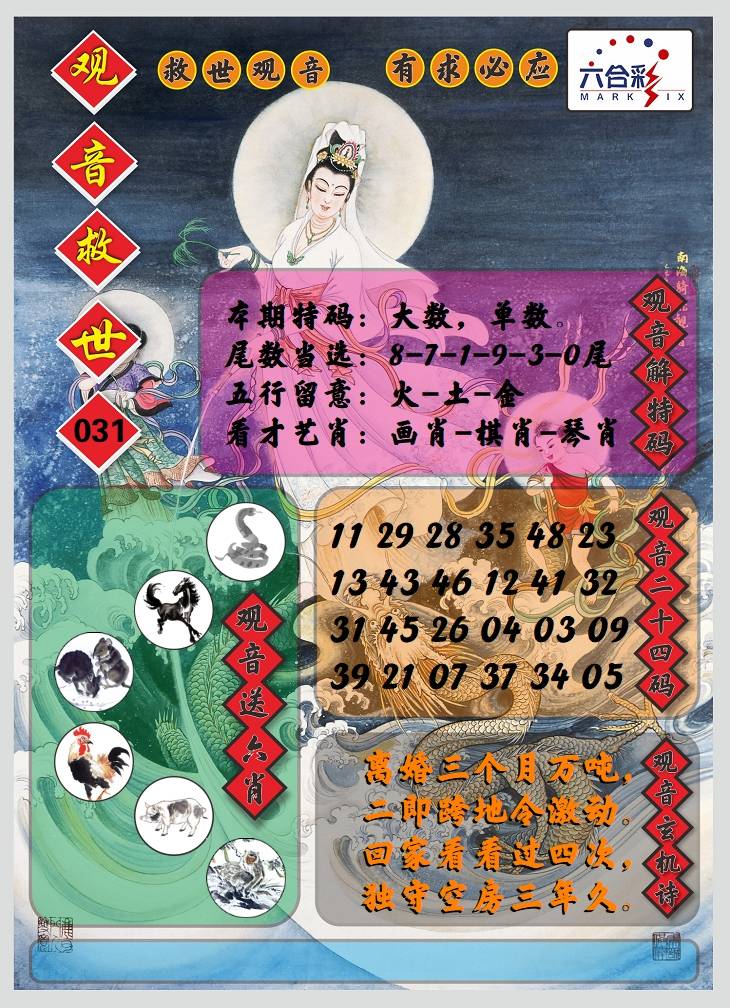 观音救世
031
救世观音 有求必应
六合彩
MARK SIX
南海
观音解特码
本期特码：大数，单数。
尾数当选：8-7-1-9-3-0尾
五行留意：火-土-金
看才艺肖：画肖-棋肖-琴肖
观音二十四码
11 29 28 35 48 23
13 43 46 12 41 32
31 45 26 04 03 09
39 21 07 37 34 05
观音送六肖
观音玄机诗
离婚三个月万吨，
二即跨地令激动。
回家看看过四次，
独守空房三年久。